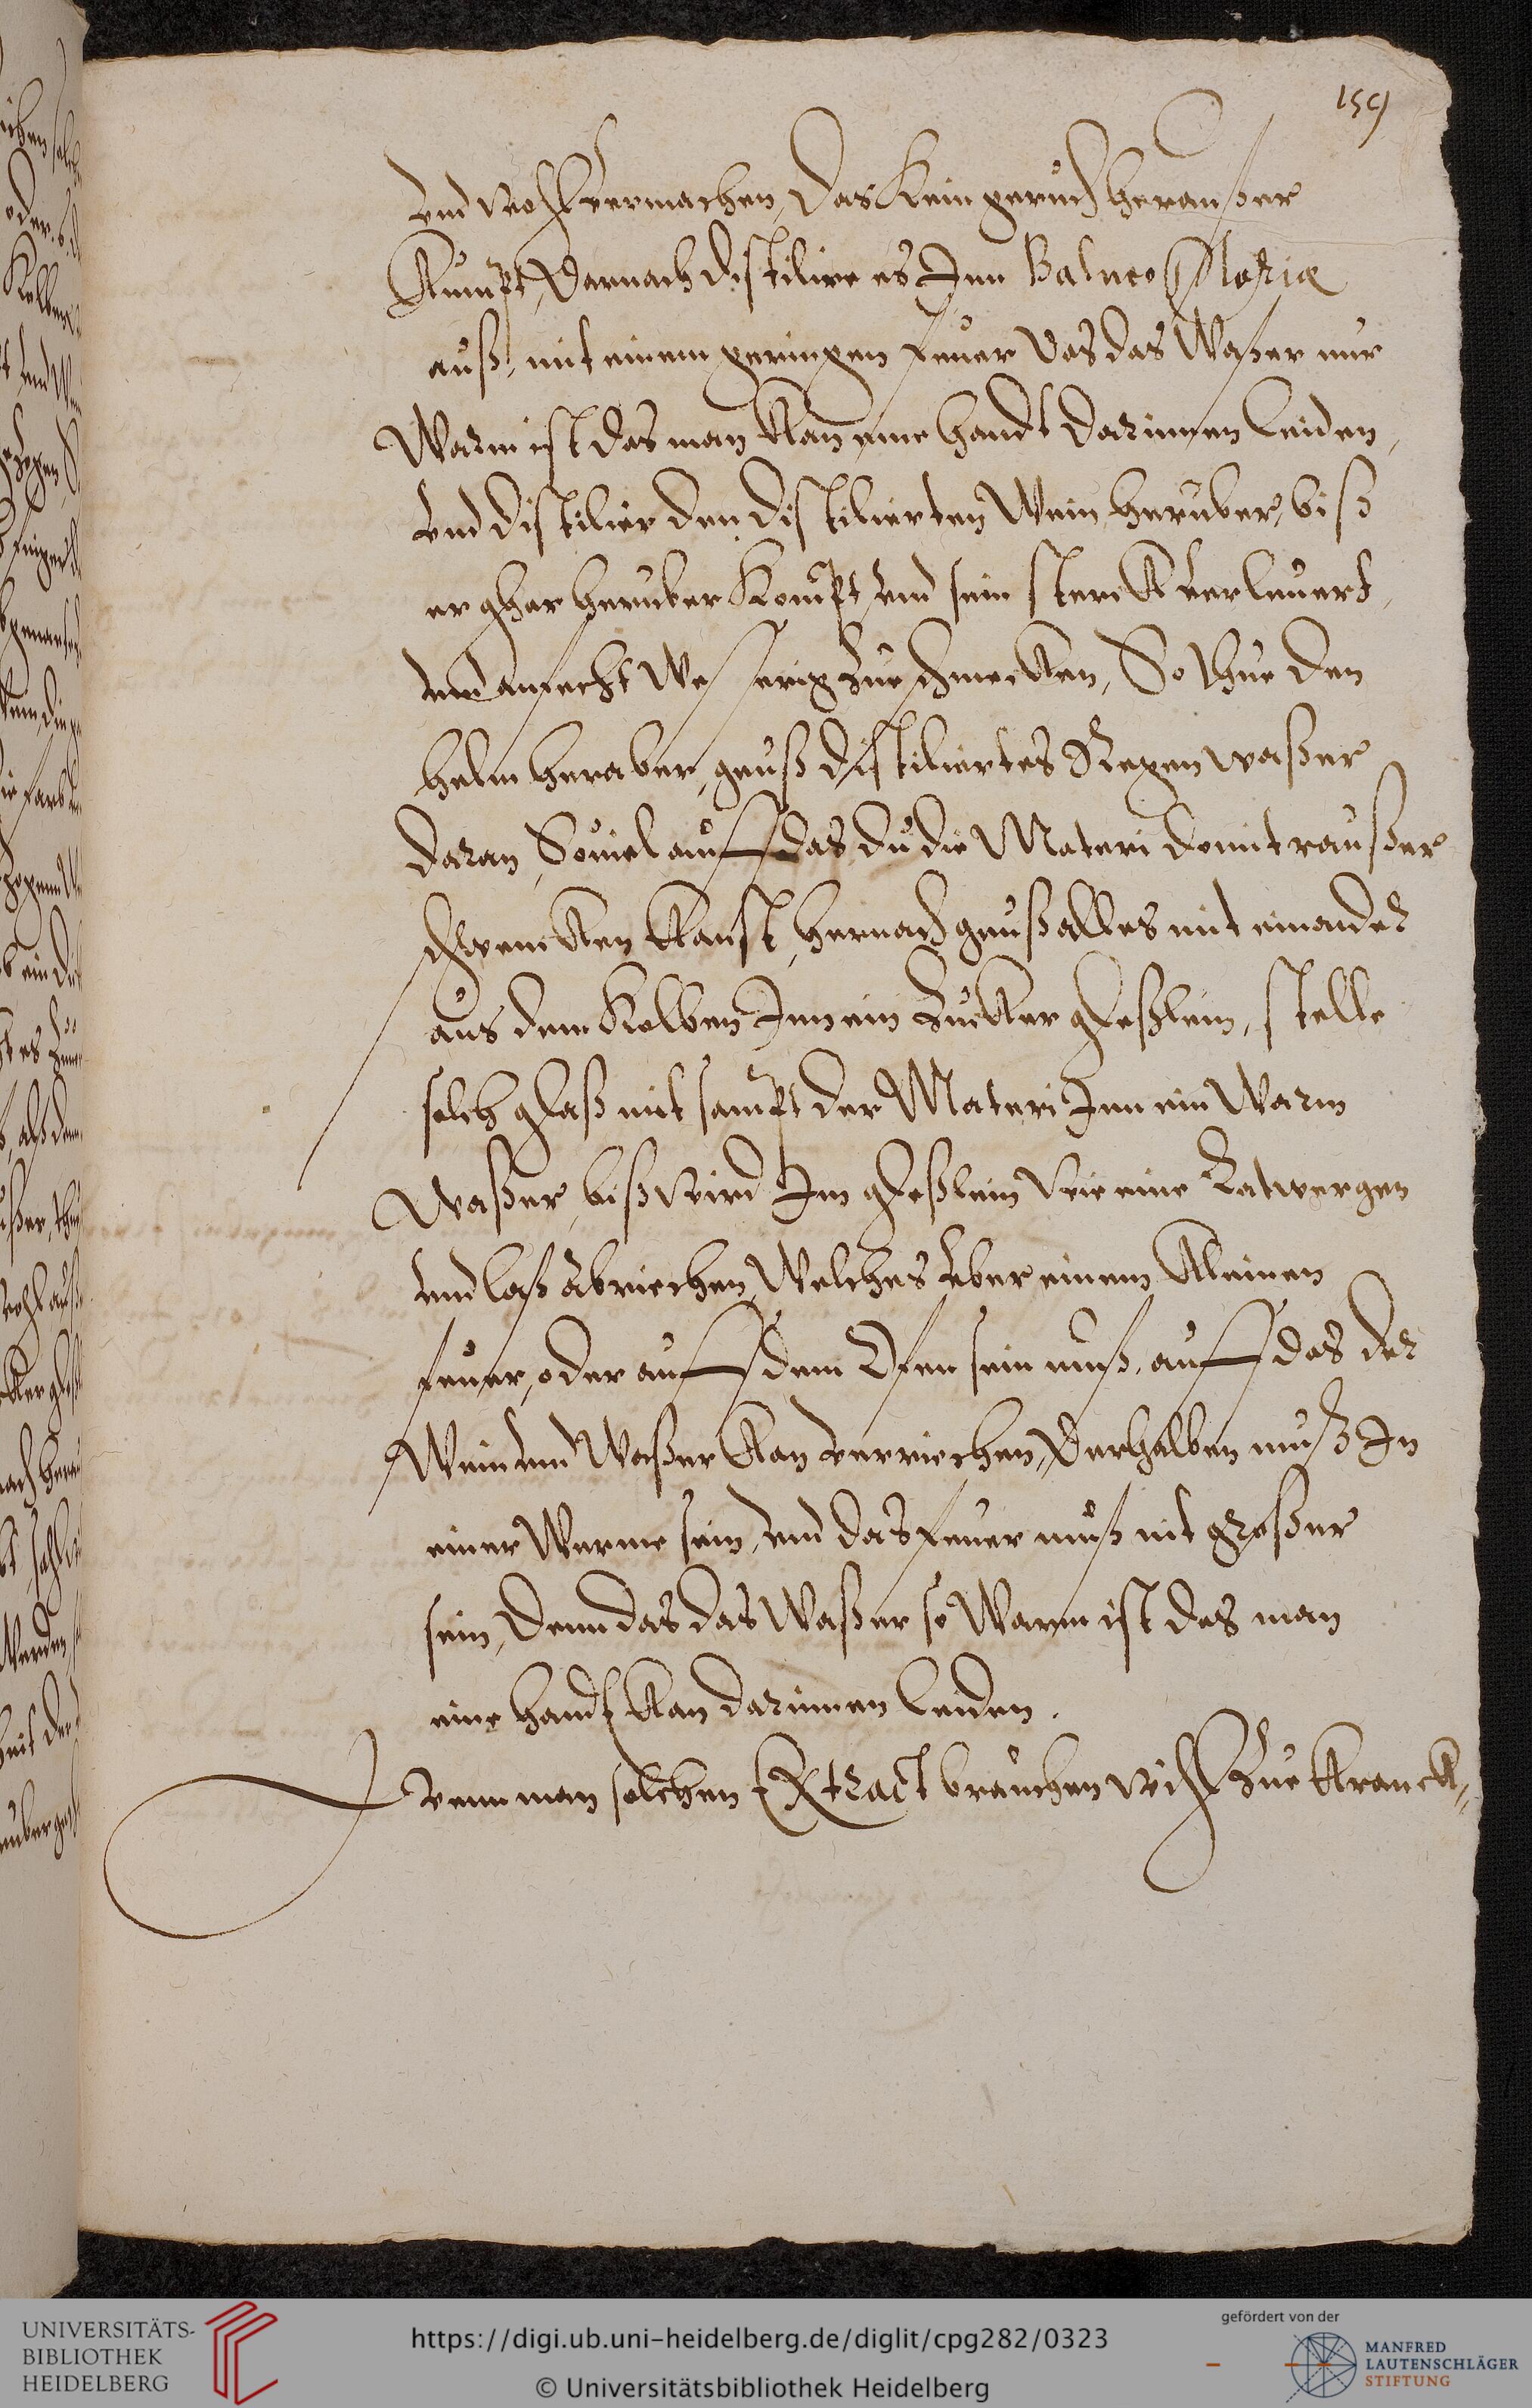 159
vnd wohl vermachen, das kein geruch heraußer
kumpt, Darnach distilire es Inn Balneo Mariæ
auß, mit einem geringen feuer das das Waßer nur
Warm ist das man kan eine handt darinnen leiden,
vnd distilier den distilierten Wein heruber, biß
er ghar heruber kompt vnd sein sterck verleuert,
vnd anfecht Weserig zue schmecken, So thue den
helm heraber, geuß distiliertes Regen waßer
daran, Souiel auff das du die Materi domit raußer
schwencken kanst, hernach geuß alles mit einander
aus dem Kolben Inn ein Zucker gleßlein, stelle
solch glaß mit sampt der Materi Inn ein Warm
Waßer, biß wird Im gleßlein wie eine Latwergen
vnd laß abriechen, Welches vber einem kleinen
feuer, oder auff dem Ofen sein muß, auff das der
Wein vnd Waßer kan verriechen, Derhalben muß In
einer Werme sein, vnd das feuer muß nit großer
sein, denn das das Waßer so Warm ist das man
eine handt kan darinnen leiden.
Wenn man solchen Extract brauchen will Zue kranck=
UNIVERSITÄTS-
BIBLIOTHEK
HEIDELBERG
https://digi.ub.uni-heidelberg.de/diglit/cpg282/0323
© Universitätsbibliothek Heidelberg
gefördert von der
MANFRED
LAUTENSCHLÄGER
STIFTUNG